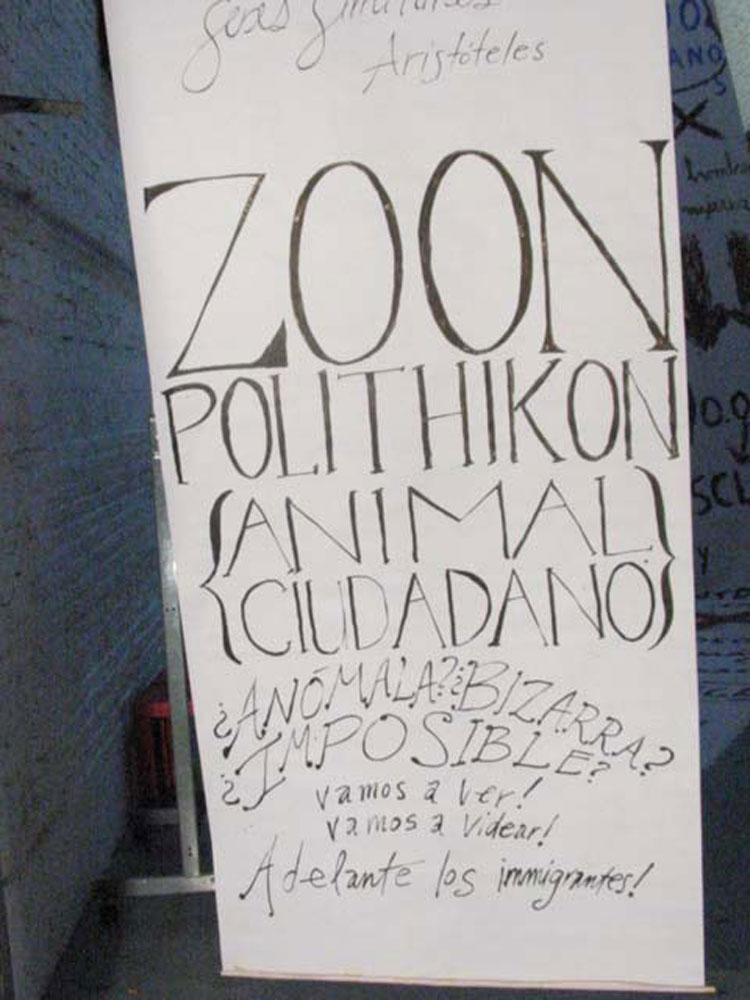 Aristóteles
ZOON
POLITHIKON
{ANIMAL}
{CIUDADANO}
¿ANÓMALA? ¿BIZARRA?
¿IMPOSIBLE?
vamos a ver!
vamos a videar!
Adelante los immigrantes!